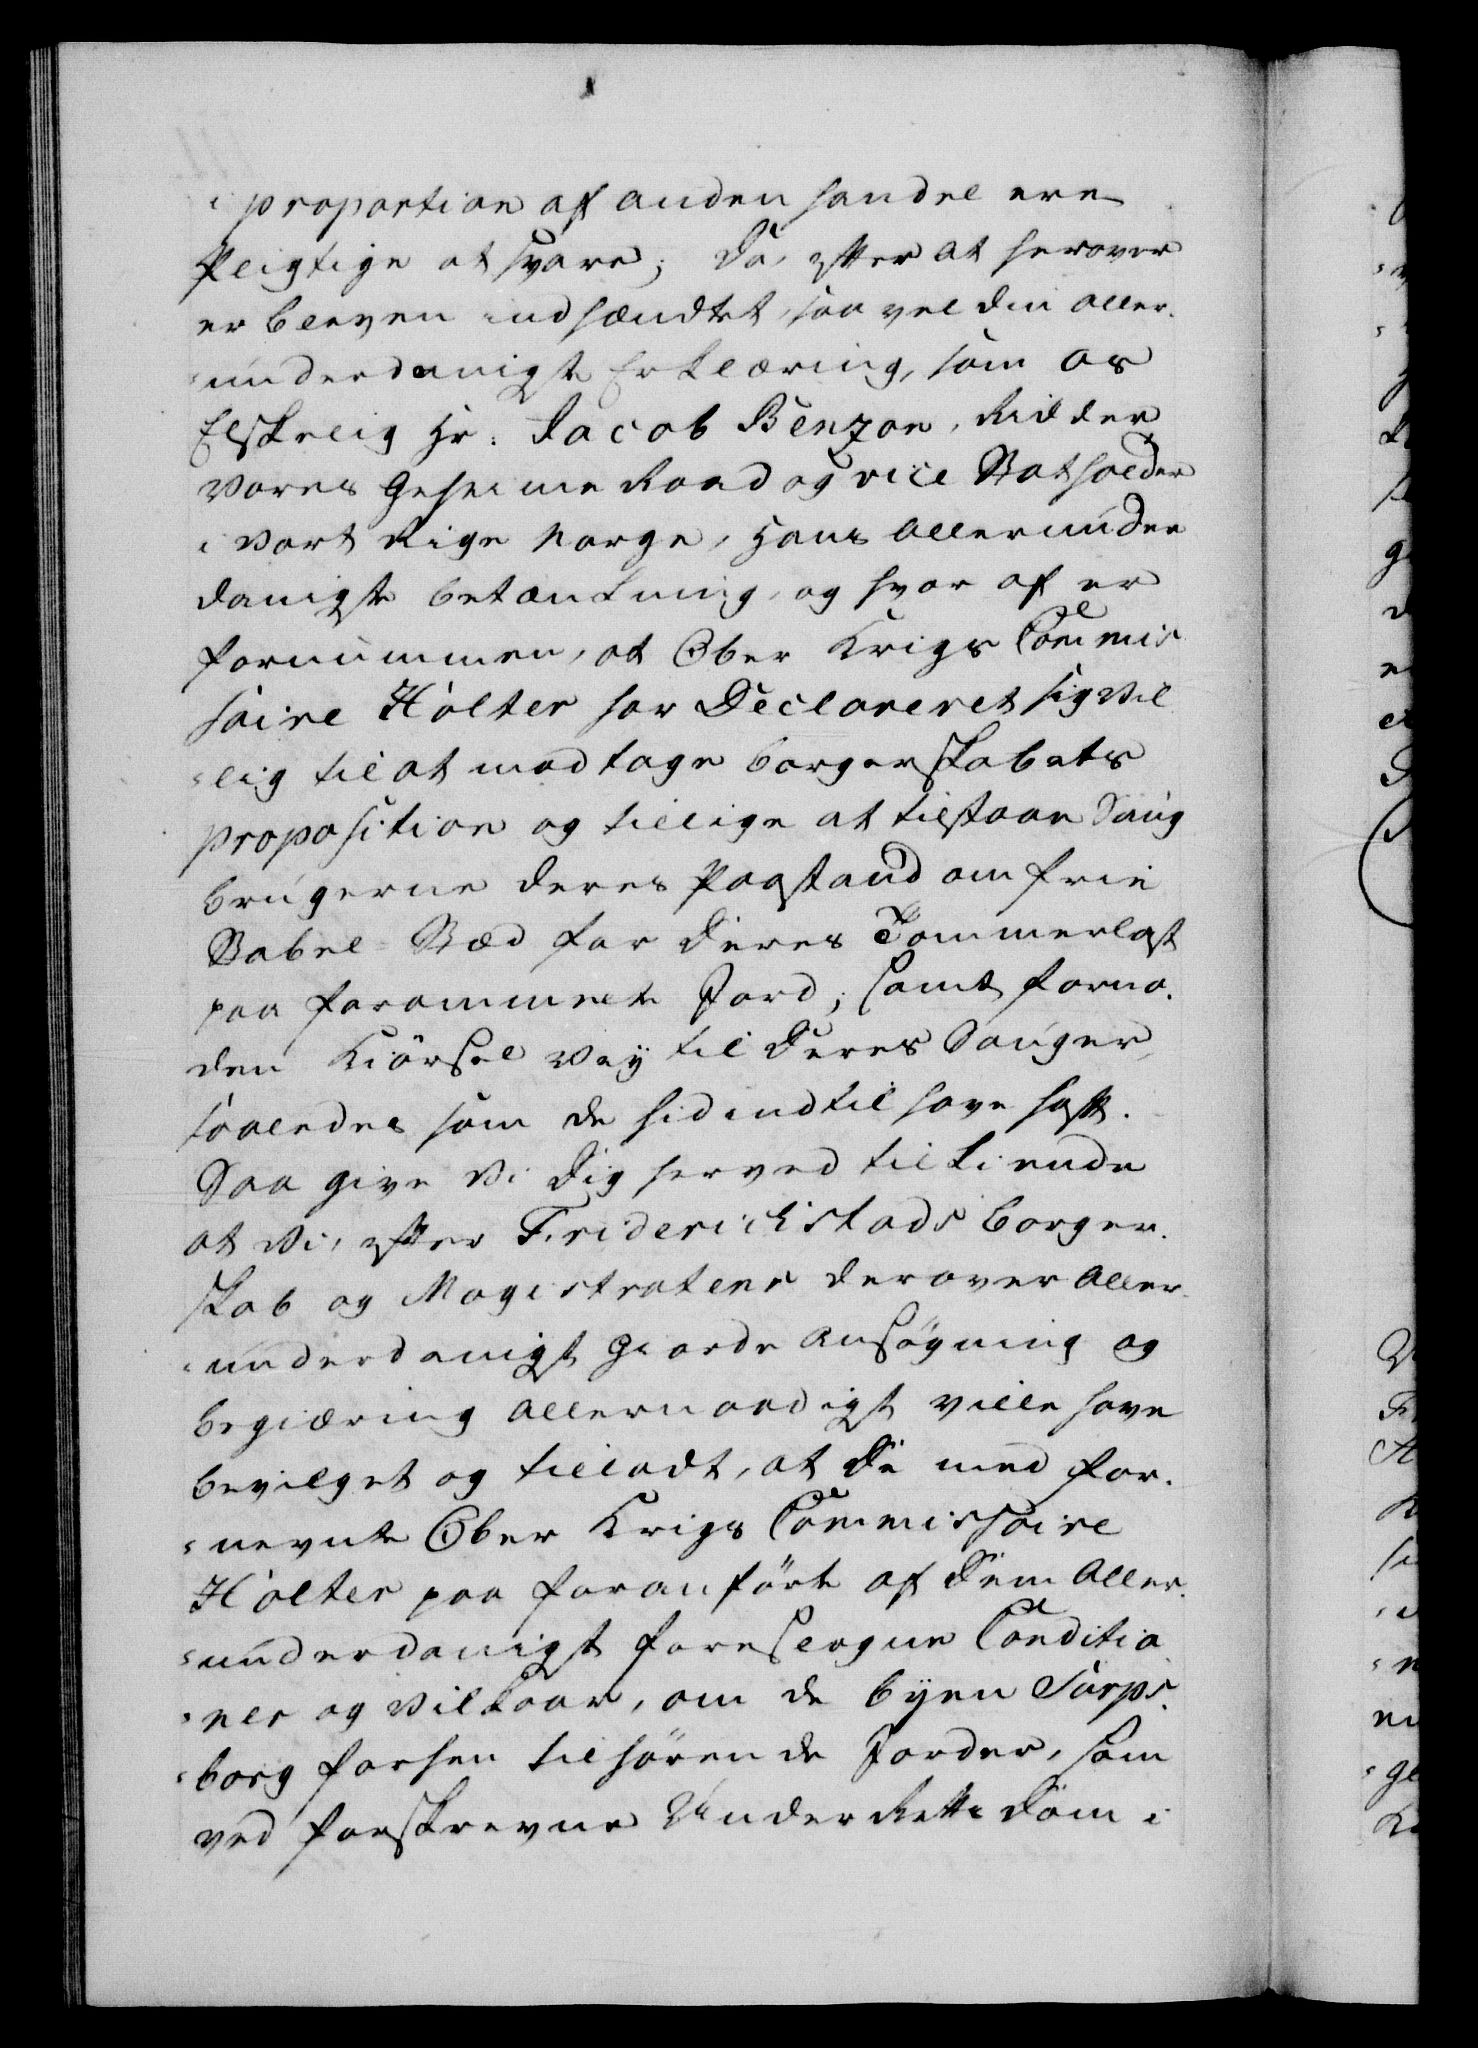 i proportion af anden handel ere
Pligtige at svare; Da, efter at herover
er bleven indhændtet, saa vel din aller-
underdanigste Erklæring, som os
Elskelig Hr: Jacob Benzon, Ridder
Vores Geheime Raad og vice Statholder
i Vort Rige Norge, Hans allerunder
danigste betænkning, og hvor af er
fornummen, at Ober Krigs Commis
saire Holter har Declareret sig vil
-lig til at modtage borgerskabets
proposition og tillige at tilstaae Saug
brugerne deres Paastand om frie
Stabel-Stæd for deres Tommerlast
paa forommelte Jord; samt forno-
den Kiörsel Vey til deres Sauger,
saaledes som de hidindtil have haft.
Saa give Vi dig herved tilkiende
at Vi, efter Friderichstads borger-
skab og Magistratens derover Aller-
-underdanigst giorde ansögning og
begiæring allernaadigst ville have
bevilget og tilladt, at De med for-
-nevnte Ober Krigs Commissaire
Holter paa foranförte af dem Aller-
-underdanigst foreslagne Conditio
-ner og Vilkaar, om de byen Sarps-
-borg forhen tilhörende Jorder, som
ved forskrevne Under Retts Dom i